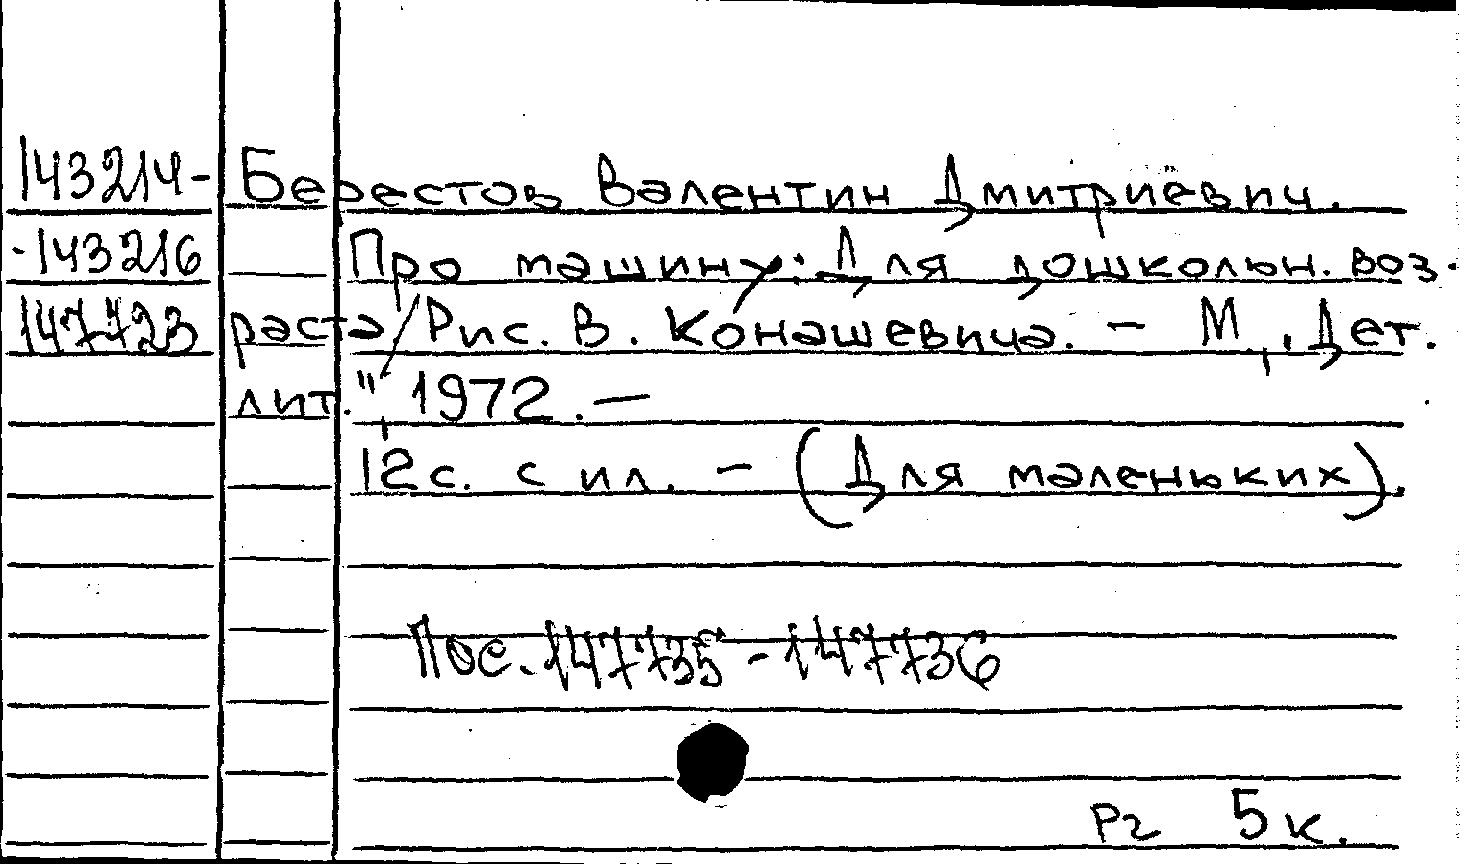 143214- Берестов Валентин Дмитриевич.
-143216 Про машину: Для дошкольн. воз-
147723 раста/Рис. В. Конашевича. - М., Дет.
лит.", 1972. -
12 с. с ил. - (Для маленьких).
Пос. 147735 - 147736
Рг 5 к.